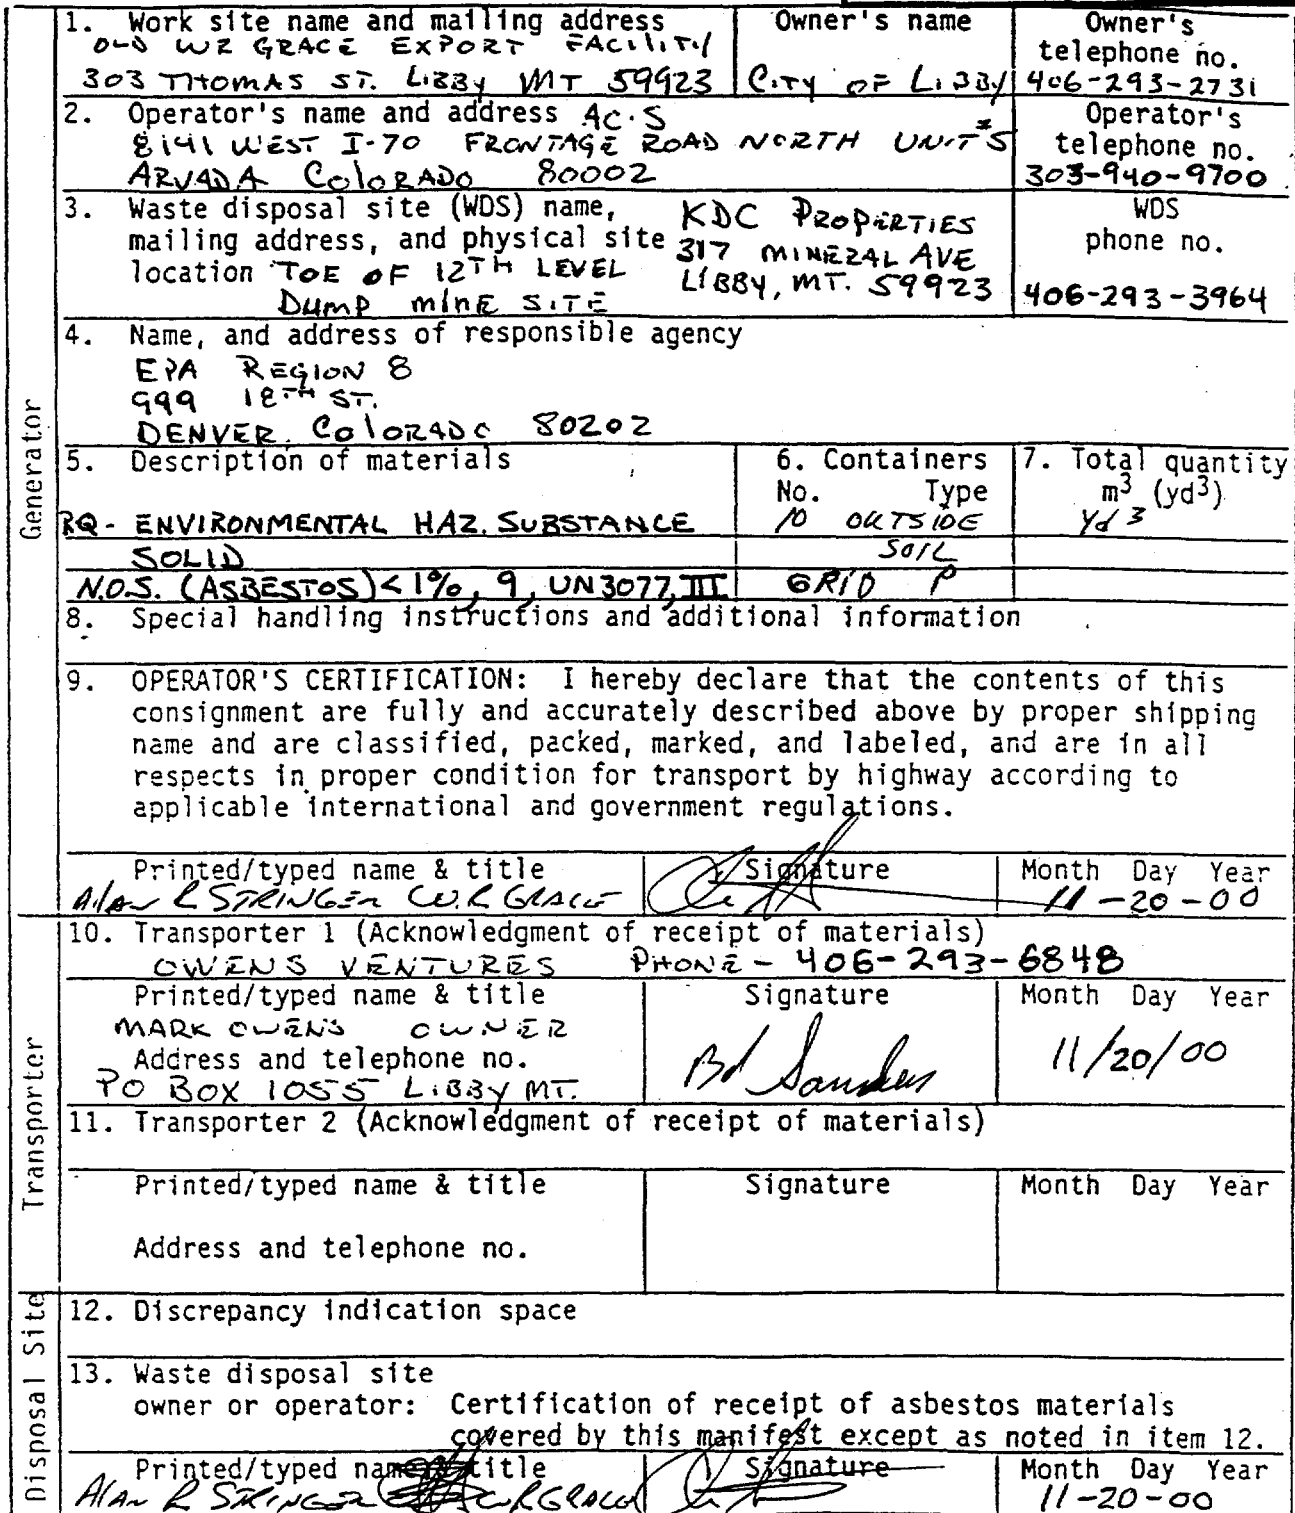 1. Work site name and mailing address
OLD WR GRACE EXPORT FACILITY
303 THOMAS ST. LIBBY MT 59923
Owner's name
CITY OF LIBBY
Owner's
telephone no.
406-293-2731
2. Operator's name and address AC.S
8141 WEST I-70 FRONTAGE ROAD NORTH UNIT #5
ARVADA COLORADO 80002
Operator's
telephone no.
303-940-9700
3. Waste disposal site (WDS) name,
mailing address, and physical site
location TOE OF 12TH LEVEL
DUMP MINE SITE
KDC PROPERTIES
317 MINERAL AVE
LIBBY, MT. 59923
WDS
phone no.
406-293-3964
4. Name, and address of responsible agency
EPA REGION 8
999 18TH ST.
DENVER, COLORADO 80202
5. Description of materials
6. Containers
No. Type
7. Total quantity
m3 (yd3)
RQ- ENVIRONMENTAL HAZ. SUBSTANCE
10 OUTSIDE
Yd 3
SOLID
SOIL
N.O.S. (ASBESTOS) < 1%, 9, UN3077, III
GRID P
8. Special handling instructions and additional information
9. OPERATOR'S CERTIFICATION: I hereby declare that the contents of this
consignment are fully and accurately described above by proper shipping
name and are classified, packed, marked, and labeled, and are in all
respects in proper condition for transport by highway according to
applicable international and government regulations.
Printed/typed name & title
Alan R STRINGER W.R GRACE
Signature
Month Day Year
11-20-00
Generator
10. Transporter 1 (Acknowledgment of receipt of materials)
OWENS VENTURES PHONE - 406-293-6848
Printed/typed name & title
MARK OWENS OWNER
Address and telephone no.
PO BOX 1055 LIBBY MT.
Signature
Sanders
Month Day Year
11/20/00
11. Transporter 2 (Acknowledgment of receipt of materials)
Printed/typed name & title
Signature
Month Day Year
Address and telephone no.
Transporter
12. Discrepancy indication space
13. Waste disposal site
owner or operator: Certification of receipt of asbestos materials
covered by this manifest except as noted in item 12.
Printed/typed name & title
Alan R STRINGER W R GRACE
Signature
Month Day Year
11-20-00
Disposal Site